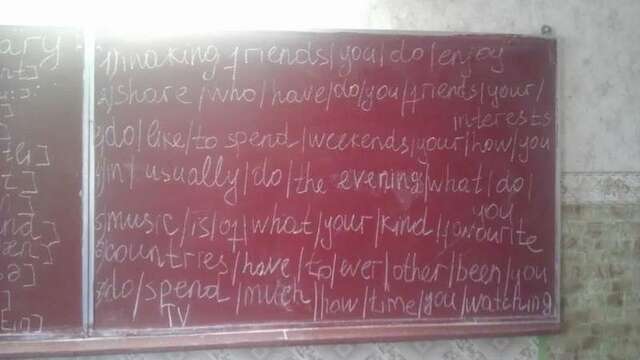 ary
1) making friends/you/do/enjoy
2) share/who/have/do/you/friends/your/
interests
3) do/like/to spend/weekends/your/how/you
4) in/usually/do/the evening/what/do/
you
5) music/is/of/what/your/kind/favourite
6) countries/have/to/ever/other/been/you
7) do/spend/much/how/time/you/watching
TV